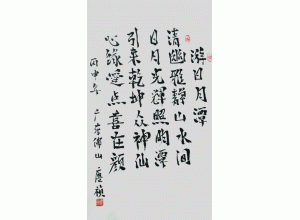 游日月潭
清幽雅静山水间
日月光辉照潭
引来乾坤众神仙
心缘受点喜在颜
丙申年 于佛山